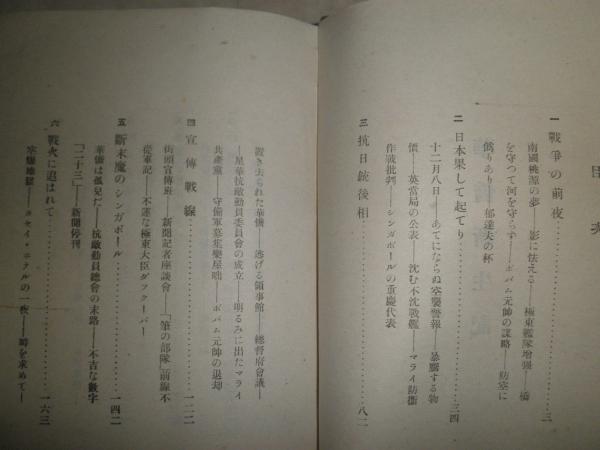 目次
一 戰爭の前夜……三
南國桃源の夢——影に怯える——極東艦隊增强——橋
を守つて河を守らず——ポパム元帥の謀略——防空に
僞りあり——郁達夫の杯
二 日本果して起てり……三四
十二月八日——あてにならぬ空襲警報——暴騰する物
價——英當局の公表——沈む不沈戰艦——マライ防衞
作戰批判——シンガポールの重慶代表
三 抗日銃後相……八二
置き去られた華僑——逃げる領事館——總督府會議——
——星華抗敵動員委員會の成立——明るみに出たマライ
共產黨——守備軍墓集樂屋咄——ポパム元帥の退却
四 宣傳戰線……一二二
街頭宣傳班——新聞記者座談會——「筆の部隊」前線不
從軍記——不運な極東大臣ダフクーパー
五 斷末魔のシンガポール……一四二
華僑は孤兒だ——抗敵動員總會の末路——不吉な數字
「二十三」——新聞停刊
六 戰火に追はれて……一六三
空爆地獄——ユセイ・ニラルの一夜——時を求めて——